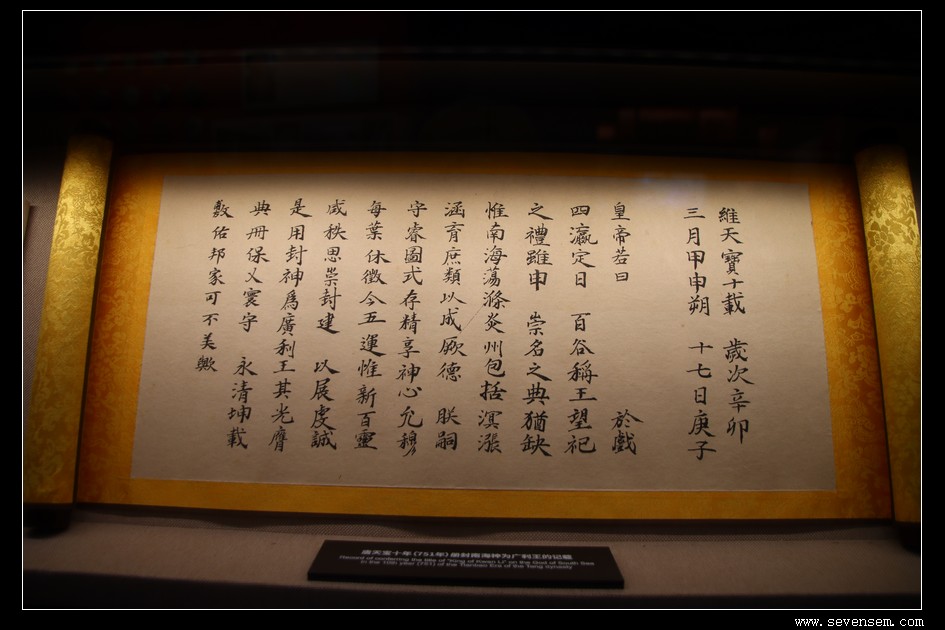 維天寶十載 歲次辛卯
三月甲申朔 十七日庚子
皇帝若曰 於戲
四瀛定日 百谷稱王望祀
之禮雖申 崇名之典猶缺
惟南海蕩滌炎州包括溟漲
涵育庶類以成厥德 朕嗣
守睿圖式存精享神心允穆
每葉休徵今五運惟新百靈
咸秩思崇封建 以展虔誠
是用封神爲廣利王其光膺
典册保乂寰守 永清坤載
敷佑邦家可不美歟
唐天宝十年(751年)册封南海神为广利王的记载
Record of conferring the title of "King of Kwan Li" on the God of South Sea
in the 10th year (751) of the Tianbao Era of the Tang dynasty
www.sevensem.com